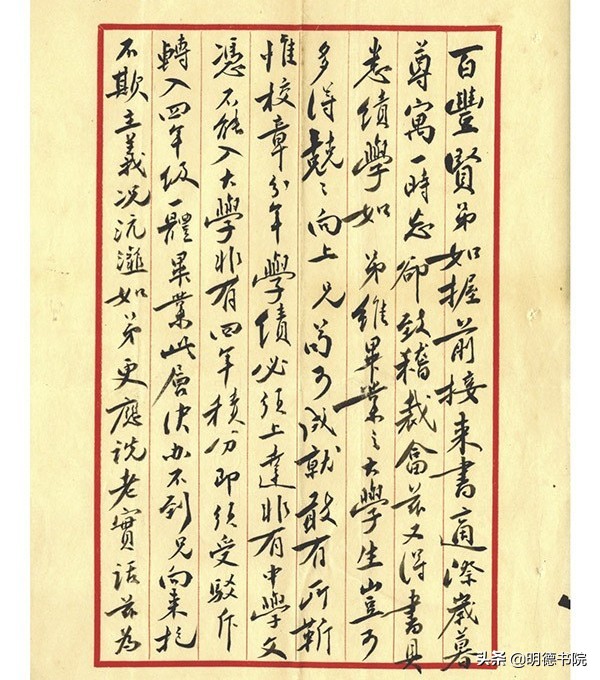 百豐賢弟如握前接来書適際歲暮
尊寓一時忘卻致稽裁畣兹又得書具
悉績學如弟維畢業之大學生豈可
多得兢〻向上兄苟可成就敢有所靳
惟校章分年學績必須上達非有中學文
憑不能入大學非有四年積分即須受駁斥
轉入四年级一體畢業此層决办不到兄向来抱
不欺主義况沆瀣如弟更應説老實話兹為
头条@明德书院